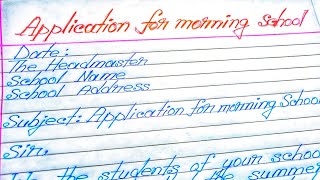 Application for morning School
Date:
The Headmaster
School Name
School Address
Subject: Application for morning School
Sir,
the students of your school
the summer